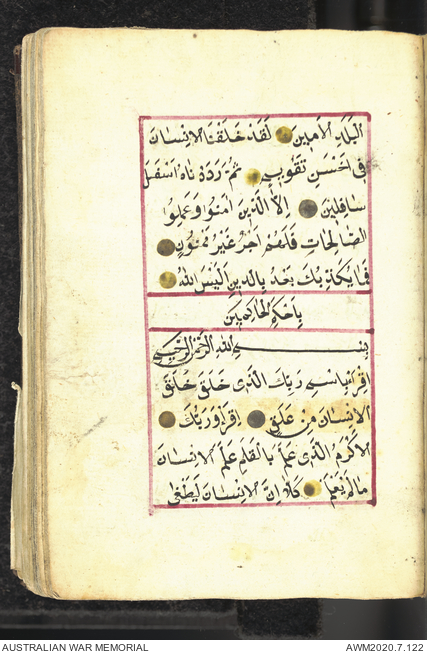 البَلَدِ الاَمِينِ لَقَدْ خَلَقْنَا الاِنْسَانَ
فِى اَحْسَنِ تَقْوِيمٍ ثُمَّ رَدَدْنَاهُ اَسْفَلَ
سَافِلِينَ اِلاَّ الَّذِينَ اٰمَنُوا وَعَمِلُوا
الصَّالِحَاتِ فَلَهُمْ اَجْرٌ غَيْرُ مَمْنُونٍ
فَمَا يُكَذِّبُكَ بَعْدُ بِالدِّينِ اَلَيْسَ اللّٰهُ
بِاَحْكَمِ الحَاكِمِينَ
بِسْمِ اللّٰهِ الرَّحْمٰنِ الرَّحِيمِ
اِقْرَأْ بِاسْمِ رَبِّكَ الَّذِى خَلَقَ خَلَقَ
الاِنْسَانَ مِنْ عَلَقٍ اِقْرَأْ وَرَبُّكَ
الاَكْرَمُ الَّذِى عَلَّمَ بِالْقَلَمِ عَلَّمَ الاِنْسَانَ
مَا لَمْ يَعْلَمْ كَلاَّ اِنَّ الاِنْسَانَ لَيَطْغٰى
AUSTRALIAN WAR MEMORIAL AWM2020.7.122